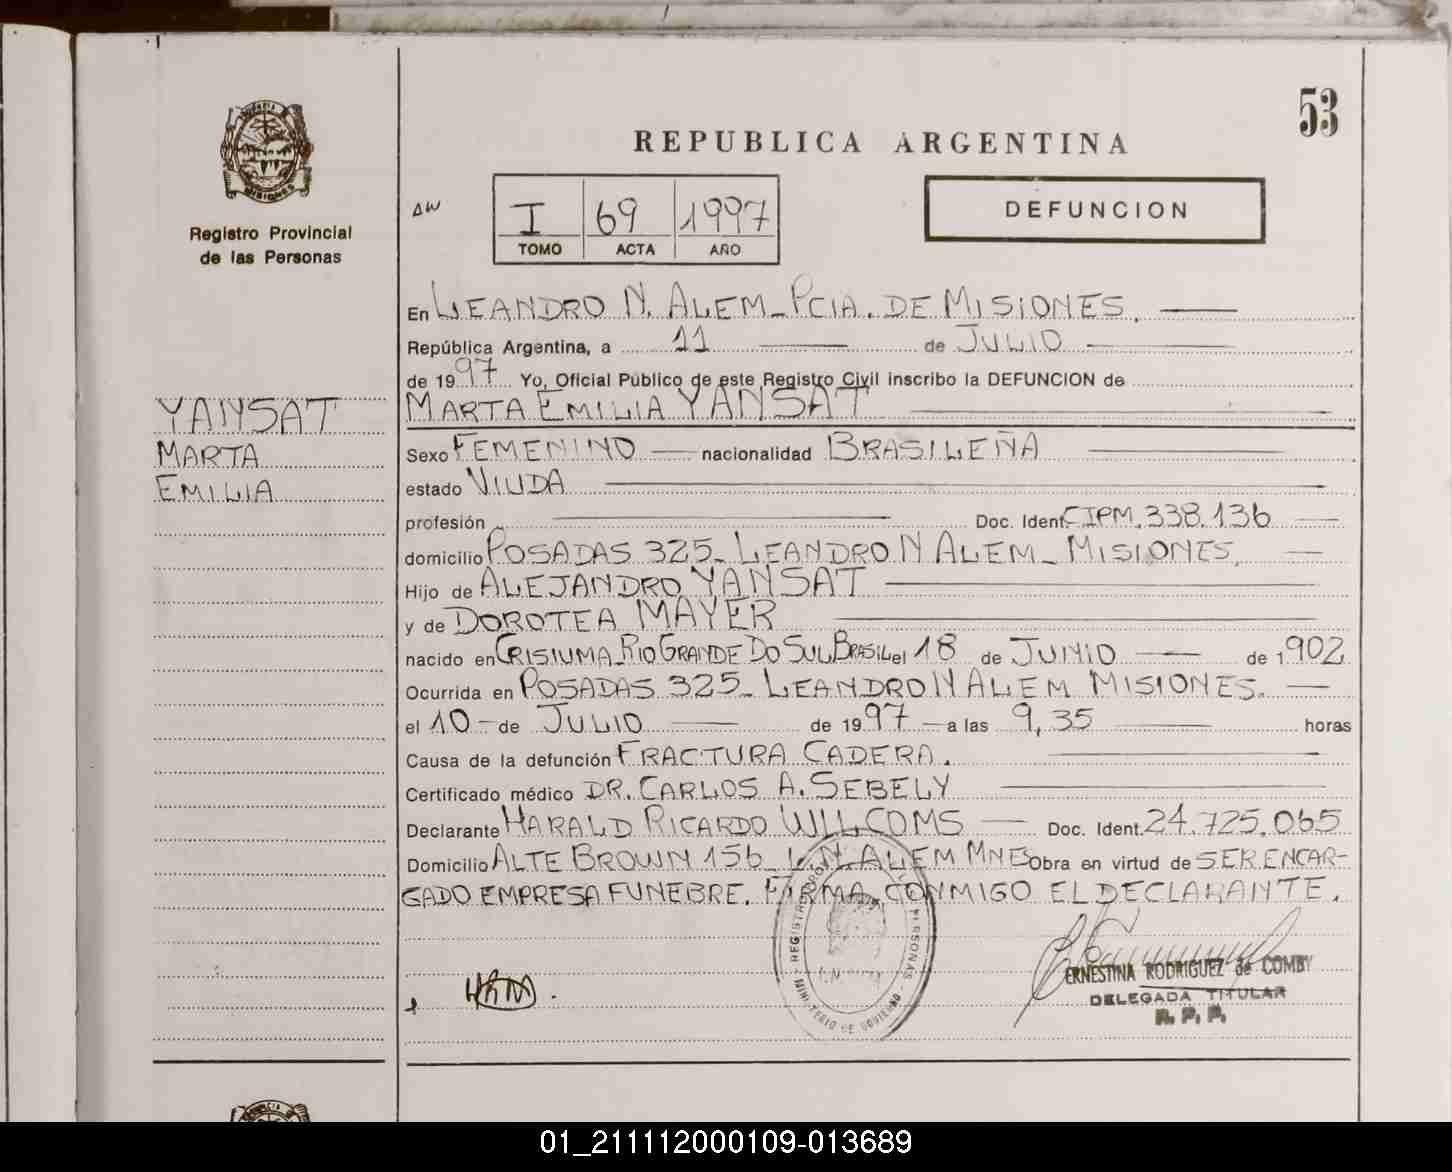 53
REPUBLICA ARGENTINA
Registro Provincial
de las Personas
AW
I 69 1997
TOMO ACTA AÑO
DEFUNCION
YANSAT
MARTA
EMILIA
En LEANDRO N. ALEM_PCIA. DE MISIONES.
República Argentina, a 11 de JULIO
de 1997 Yo, Oficial Público de este Registro Civil inscribo la DEFUNCION de
MARTA EMILIA YANSAT
Sexo FEMENINO nacionalidad BRASILEÑA
estado VIUDA
profesión Doc. Ident. CIPM. 338.136
domicilio POSADAS 325_ LEANDRO N ALEM_ MISIONES.
Hijo de ALEJANDRO YANSAT
y de DOROTEA MAYER
nacido en CRISIUMA_RIO GRANDE DO SUL BRASIL el 18 de JUNIO de 1902
Ocurrida en POSADAS 325_ LEANDRO N ALEM MISIONES.
el 10 de JULIO de 1997 a las 9,35 horas
Causa de la defunción FRACTURA CADERA.
Certificado médico DR. CARLOS A. SEBELY
Declarante HARALD RICARDO WILLCOMS Doc. Ident. 24.725.065
Domicilio ALTE BROWN 156_ L.N. ALEM MNES Obra en virtud de SER ENCAR-
GADO EMPRESA FUNEBRE. FIRMA CONMIGO EL DECLARANTE.
ERNESTINA RODRIGUEZ de COMBY
DELEGADA TITULAR
R. P. P.
MINISTERIO DE GOBIERNO
01_211112000109-013689